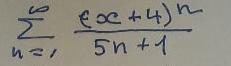 ∑_{n=1}^{∞} \frac{(x+4)^n}{5n+1}